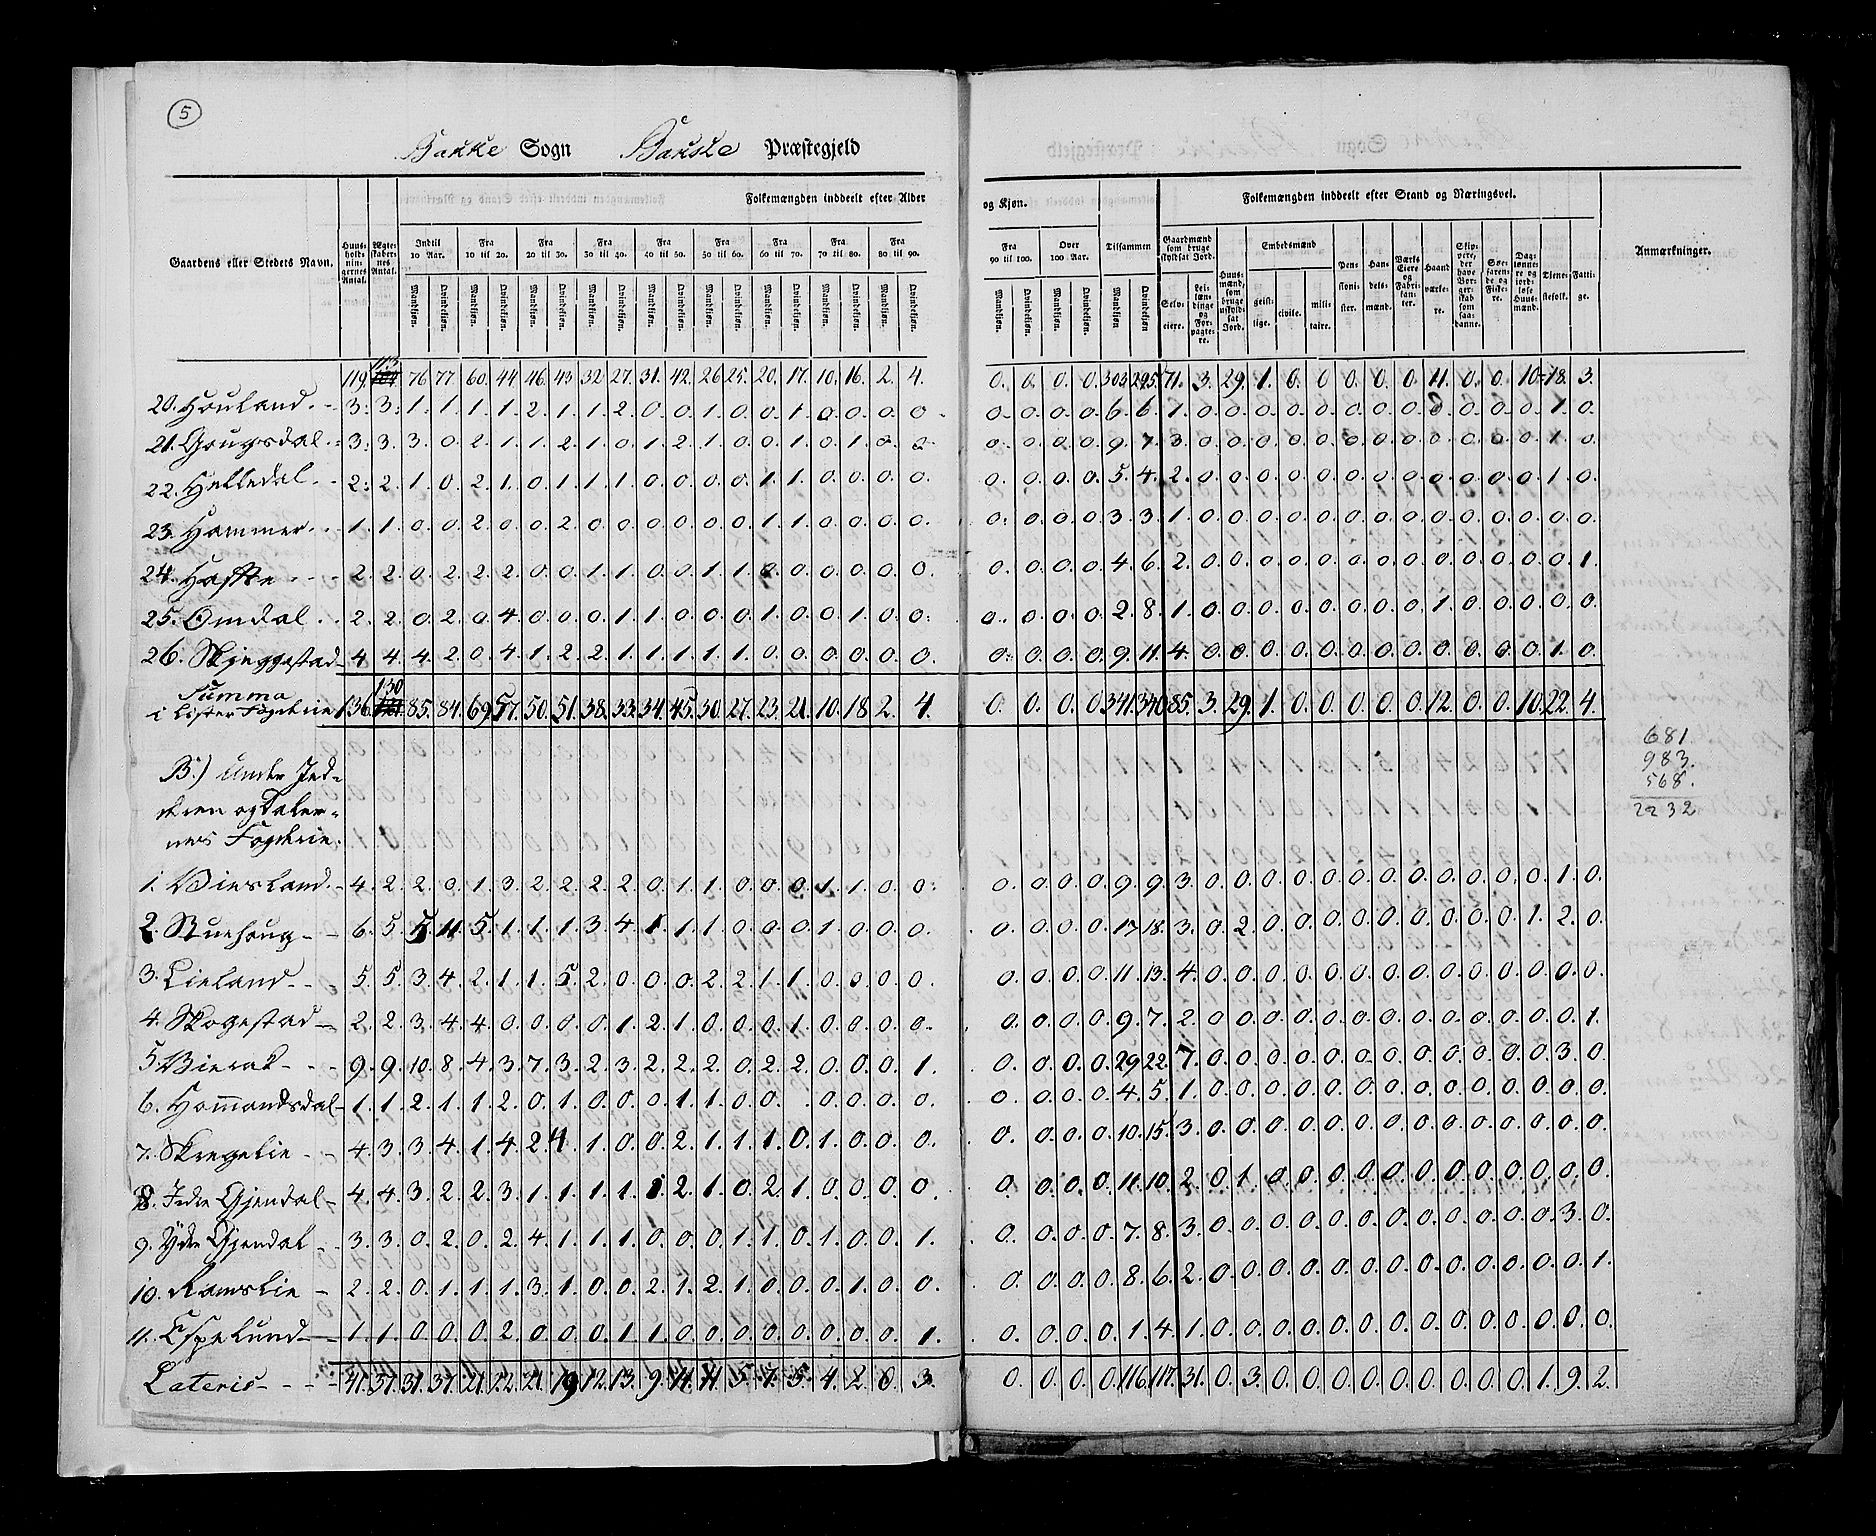 5
Bakke Sogn Bakke Præstegjeld
Folkemængden inddeelt efter Alder og Kjøn.
Folkemængden inddeelt efter Stand og Næringsvei.
Gaardens eller Stedets Navn.
Huus-holdnin-gernes Antal.
Ægte-skabernes Antal.
Indtil 10 Aar. Fra 10 til 20. Fra 20 til 30. Fra 30 til 40. Fra 40 til 50. Fra 50 til 60. Fra 60 til 70. Fra 70 til 80. Fra 80 til 90. Fra 90 til 100. Over 100 Aar. Tilsammen
Mandkjøn. Qvindekjøn.
Gaardmænd som bruge skyldsat Jord.
Selv-eiere. Leilændinge og Forpagtere.
Huusmænd, som bruge uskyldsat Jord.
Embedsmænd
geistlige. civile. militaire.
Pensionister. Handelsmænd. Værks Eiere og Fabrikanter. Haandværkere. Skippere, der have Borgerskab som saadanne. Søefarende og Fiskere. Daglønnere og jordløse Huusmænd. Tjenestefolk. Fattige.
Anmærkninger.
119. 113 76. 77. 60. 44. 46. 43. 32. 27. 31. 42. 26. 25. 20. 17. 10. 16. 2. 4. 0. 0. 0. 0. 303. 295. 71. 3. 29. 1. 0. 0. 0. 0. 0. 11. 0. 0. 10. 18. 3.
20. Houland. 3. 3. 1. 1. 1. 1. 2. 1. 1. 2. 0. 0. 1. 0. 0. 1. 0. 0. 0. 0. 0. 0. 0. 0. 6. 6. 1. 0. 0. 0. 0. 0. 0. 0. 0. 0. 0. 0. 0. 1. 0.
21. Gougsdal. 3. 3. 3. 0. 2. 1. 1. 2. 1. 0. 1. 2. 1. 0. 0. 1. 0. 1. 0. 0. 0. 0. 0. 0. 9. 7. 3. 0. 0. 0. 0. 0. 0. 0. 0. 0. 0. 0. 0. 1. 0.
22. Helledal. 2. 2. 1. 0. 2. 1. 0. 1. 1. 1. 0. 0. 0. 0. 1. 1. 0. 0. 0. 0. 0. 0. 0. 0. 5. 4. 2. 0. 0. 0. 0. 0. 0. 0. 0. 0. 0. 0. 0. 1. 0.
23. Hammer. 1. 1. 0. 0. 2. 0. 0. 2. 0. 0. 0. 0. 0. 0. 1. 1. 0. 0. 0. 0. 0. 0. 0. 0. 3. 3. 1. 0. 0. 0. 0. 0. 0. 0. 0. 0. 0. 0. 0. 0. 0.
24. 2. 2. 0. 2. 2. 2. 0. 0. 1. 1. 0. 0. 1. 1. 0. 0. 0. 0. 0. 0. 0. 0. 0. 0. 4. 6. 2. 0. 0. 0. 0. 0. 0. 0. 0. 0. 0. 0. 0. 0. 1.
25. Omdal. 2. 2. 0. 2. 0. 4. 0. 0. 0. 1. 1. 0. 0. 0. 1. 0. 0. 1. 0. 0. 0. 0. 0. 0. 2. 8. 1. 0. 0. 0. 0. 0. 0. 0. 0. 1. 0. 0. 0. 0. 0.
26. Skjeggestad 4. 4. 4. 2. 0. 4. 1. 2. 2. 1. 1. 1. 1. 1. 0. 0. 0. 0. 0. 0. 0. 0. 0. 0. 9. 11. 4. 0. 0. 0. 0. 0. 0. 0. 0. 0. 0. 0. 0. 1. 0.
Summa
i Lister Fogderie 136. 130 85. 84. 69. 57. 50. 51. 38. 33. 34. 45. 30. 27. 23. 21. 10. 18. 2. 4. 0. 0. 0. 0. 341. 340. 85. 3. 29. 1. 0. 0. 0. 0. 0. 12. 0. 0. 10. 22. 4.
681
983.
568.
2232
B.) Under Jed-
deren og Daler-
nes Fogderie.
1. Virsland. 4. 2. 2. 0. 1. 3. 2. 2. 2. 2. 0. 1. 1. 0. 0. 0. 1. 1. 0. 0. 0. 0. 0. 0. 9. 9. 3. 0. 0. 0. 0. 0. 0. 0. 0. 0. 0. 0. 0. 1. 0.
2. Stuehoug 6. 5. 5. 11. 5. 1. 1. 1. 3. 4. 1. 1. 1. 0. 0. 0. 1. 0. 0. 0. 0. 0. 0. 0. 17. 18. 3. 0. 2. 0. 0. 0. 0. 0. 0. 0. 0. 0. 1. 2. 0.
3. Lieland 5. 5. 3. 4. 2. 1. 1. 5. 2. 0. 0. 0. 2. 2. 1. 1. 0. 0. 0. 0. 0. 0. 0. 0. 11. 13. 4. 0. 0. 0. 0. 0. 0. 0. 0. 0. 0. 0. 0. 0. 0.
4. Skogestad 2. 2. 3. 4. 4. 0. 0. 0. 0. 1. 2. 1. 0. 0. 0. 1. 0. 0. 0. 0. 0. 0. 0. 0. 9. 7. 2. 0. 0. 0. 0. 0. 0. 0. 0. 0. 0. 0. 0. 0. 1.
5. Vierak 9. 9. 10. 8. 4. 3. 7. 3. 2. 3. 2. 2. 2. 0. 2. 2. 0. 0. 0. 1. 0. 0. 0. 0. 29. 22. 7. 0. 0. 0. 0. 0. 0. 0. 0. 0. 0. 0. 0. 3. 0.
6. Homandsdal 1. 1. 2. 1. 1. 2. 0. 1. 0. 0. 0. 1. 1. 0. 0. 0. 0. 0. 0. 0. 0. 0. 0. 4. 5. 1. 0. 0. 0. 0. 0. 0. 0. 0. 0. 0. 0. 0. 0. 0.
7. Skregelie 4. 3. 3. 4. 1. 4. 2. 4. 1. 0. 0. 2. 1. 1. 1. 0. 1. 0. 0. 0. 0. 0. 0. 0. 10. 15. 3. 0. 0. 0. 0. 0. 0. 0. 0. 0. 0. 0. 0. 0. 0.
8. Indre Gjendal 4. 4. 3. 2. 2. 3. 1. 1. 1. 1. 1. 2. 1. 0. 2. 1. 0. 0. 0. 0. 0. 0. 0. 0. 11. 10. 2. 0. 1. 0. 0. 0. 0. 0. 0. 0. 0. 0. 0. 0. 0.
9. Ydre Gjendal 3. 3. 0. 2. 0. 2. 4. 1. 1. 1. 0. 0. 0. 1. 1. 0. 1. 0. 0. 1. 0. 0. 0. 0. 7. 8. 3. 0. 0. 0. 0. 0. 0. 0. 0. 0. 0. 0. 0. 3. 0.
10. Ramslie 2. 2. 0. 1. 1. 1. 3. 1. 0. 0. 2. 1. 2. 1. 0. 0. 0. 1. 0. 0. 0. 0. 0. 0. 8. 6. 2. 0. 0. 0. 0. 0. 0. 0. 0. 0. 0. 0. 0. 0. 1.
11. Espelund 1. 1. 0. 0. 0. 2. 0. 0. 0. 1. 1. 0. 0. 0. 0. 0. 0. 0. 0. 1. 0. 0. 0. 0. 1. 4. 1. 0. 0. 0. 0. 0. 0. 0. 0. 0. 0. 0. 0. 0. 0.
Lateris 41. 37. 31. 37. 21. 22. 21. 19. 12. 13. 9. 11. 11. 5. 7. 5. 4. 2. 0. 3. 0. 0. 0. 0. 116. 117. 31. 0. 3. 0. 0. 0. 0. 0. 0. 0. 0. 0. 1. 9. 2.